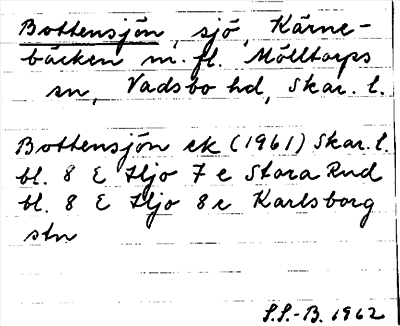 Bottensjön, sjö, Kärne-
bäcken m. fl. Mölltorps
sn, Vadsbo hd, Skar. l.
Bottensjön ek (1961) Skar. l.
bl. 8 E Hjo 7 e Stora Rud
bl. 8 E Hjo 8 e Karlsborg
stn
S.S.-B. 1962